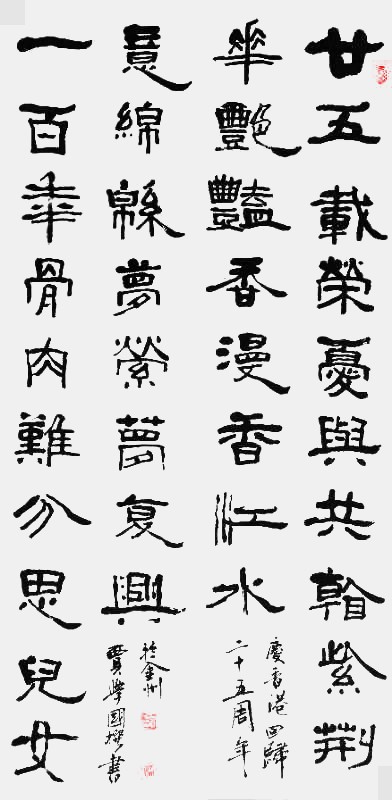 廿五載榮憂與共翰紫荆
華艷豔香漫香江水
慶香港回歸
二十五周年
一百年骨肉難分思兒女
意綿緜夢縈夢复興
於金州
賈學國撰書